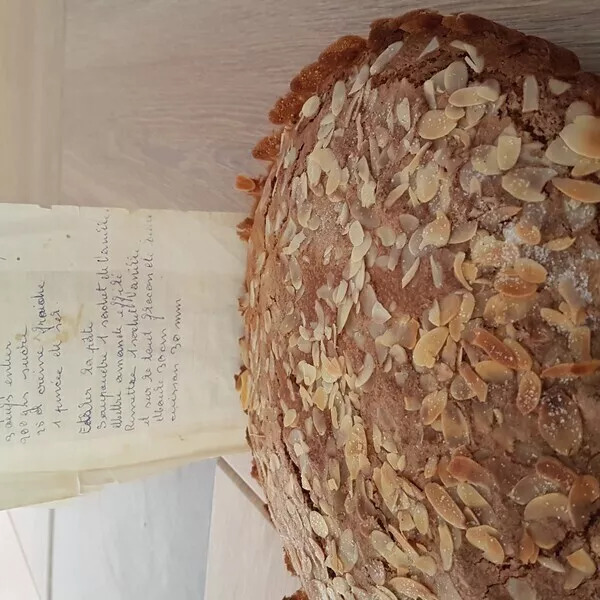 3 œufs entier
200 grs sucre
25 cl creme fraiche
1 pincée de sel
Etaler la pâte
Saupoudrer 1 sachet de Vanille
Mettre amande effilé
Remettre 1 sachet Vanille
et sur le haut flocon de
30 mn
cuisson 30 mm